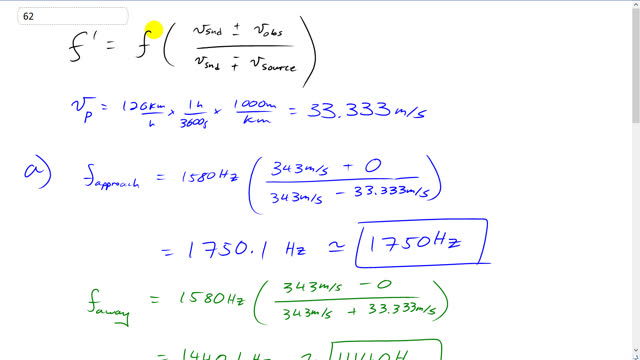 62
f' = f ( v_snd ± v_obs / v_snd ∓ v_source )
v_p = 120km/h × 1h/3600s × 1000m/km = 33.333 m/s
a) f_approach = 1580Hz ( 343m/s + 0 / 343m/s − 33.333m/s )
= 1750.1 Hz ≃ 1750Hz
f_away = 1580Hz ( 343m/s − 0 / 343m/s + 33.333m/s )